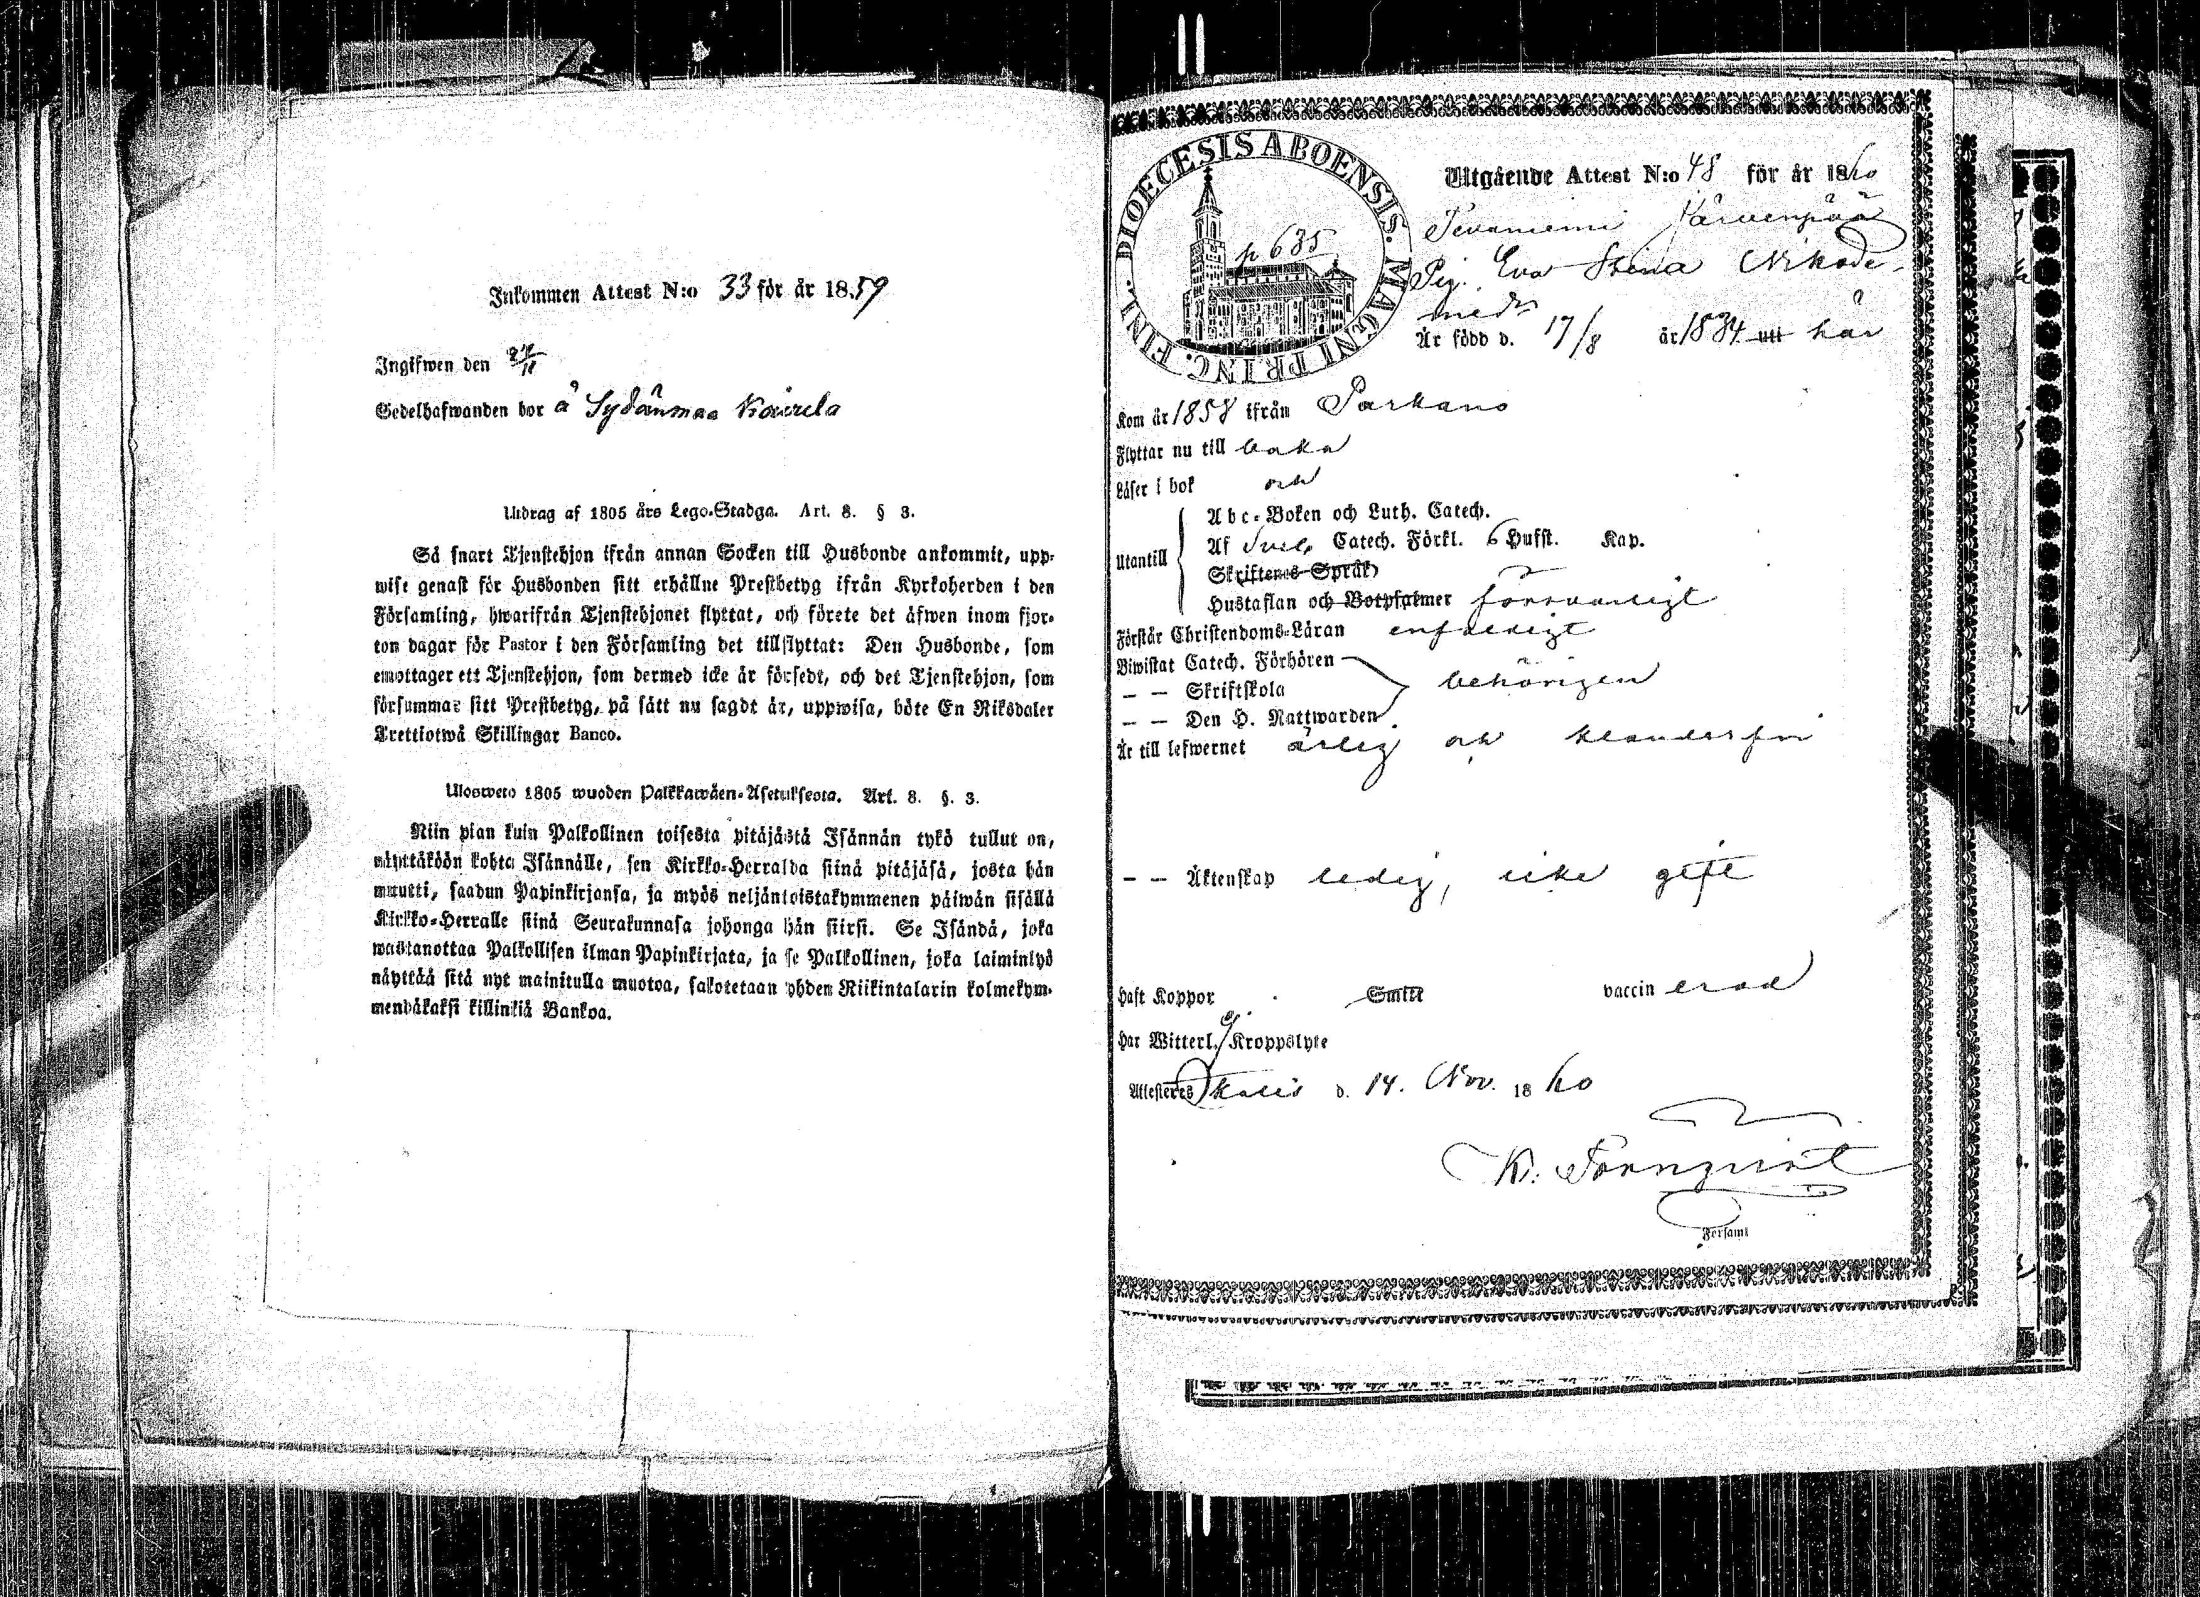 Inkommen Attest N:o 33 för år 1859
Ingifwen den 27/11
Sedelhafwanden bor å Sydänmaa Käärelä
Utdrag af 1805 års Lego-Stadga. Art. 8. § 3.
Så snart Tjenstehjon ifrån annan Socken till Husbonde ankommit, upp-
wise genast för Husbonden sitt erhållne Prestbetyg ifrån Kyrkoherden i den
Församling, hwarifrån Tjenstehjonet flyttat, och förete det äfwen inom fjor-
ton dagar för Pastor i den Församling det tillflyttat: Den Husbonde, som
emottager ett Tjenstehjon, som dermed icke är försedt, och det Tjenstehjon, som
försummar sitt Prestbetyg, på sätt nu sagdt är, uppwisa, böte En Riksdaler
Trettiotwå Skillingar Banco.
Ulosweto 1805 wuoden Palkkawäen-Asetuksesta. Art. 8. §. 3.
Niin pian kuin Palkollinen toisesta pitäjästä Isännän tykö tullut on,
näyttäköön kohta Isännälle, sen Kirkko-Herralda siinä pitäjäsä, josta hän
muutti, saadun Papinkirjansa, ja myös neljäntoistakymmenen päiwän sisällä
Kirkko-Herralle siinä Seurakunnasa johonga hän siirsi. Se Isändä, joka
wastanottaa Palkollisen ilman Papinkirjata, ja se Palkollinen, joka laiminlyö
näyttää sitä nyt mainitulla muotoa, sakotetaan yhden Riikintalarin kolmekym-
mendäkaksi killinkiä Bankoa.
DIOECESIS ABOENSIS. MAGNI PRINC. FINL.
p 635
Utgående Attest N:o 48 för år 1860
Tevaniemi Järvenpää
Pig. Eva Stina Nikode-
med:r
Är född d. 17/8 år 1834 uti här
Kom år 1858 ifrån Parkano
Flyttar nu till baka
Läser i bok och
Utantill
Abc-Boken och Luth. Catech.
Af Svel. Catech. Förkl. 6 Hufst. Kap.
Skriftenes Språk
Hustaflan och Botpsalmer försvarligt
Förstår Christendoms-Läran enfaldigt
Biwistat Catech. Förhören
— — Skriftskola behörigen
— — Den H. Nattwarden
Är till lefwernet ärlig och klanderfri
— — Äktenskap ledig, icke gift
Haft Koppor Smitt vaccin erad
Har Witterl. ej Kroppslyte
Attesteres Ikalis d. 14. Nov. 1860
K. Törnqvist
Forsaml